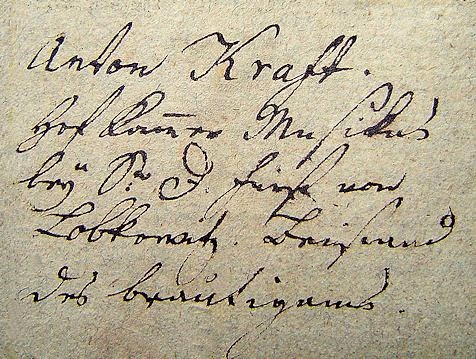 Anton Kraft.
Hof Kam̅er Musikus
bey Sr. D. Fürst von
Lobkowitz. Beistand
des bräutigams.